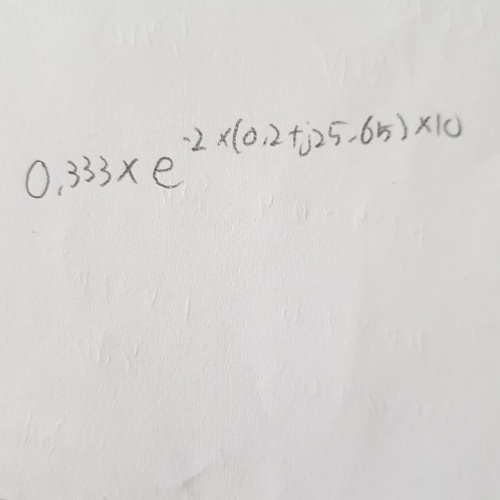 0.333 × e^-2 × (0.2 + j25.65) × 10